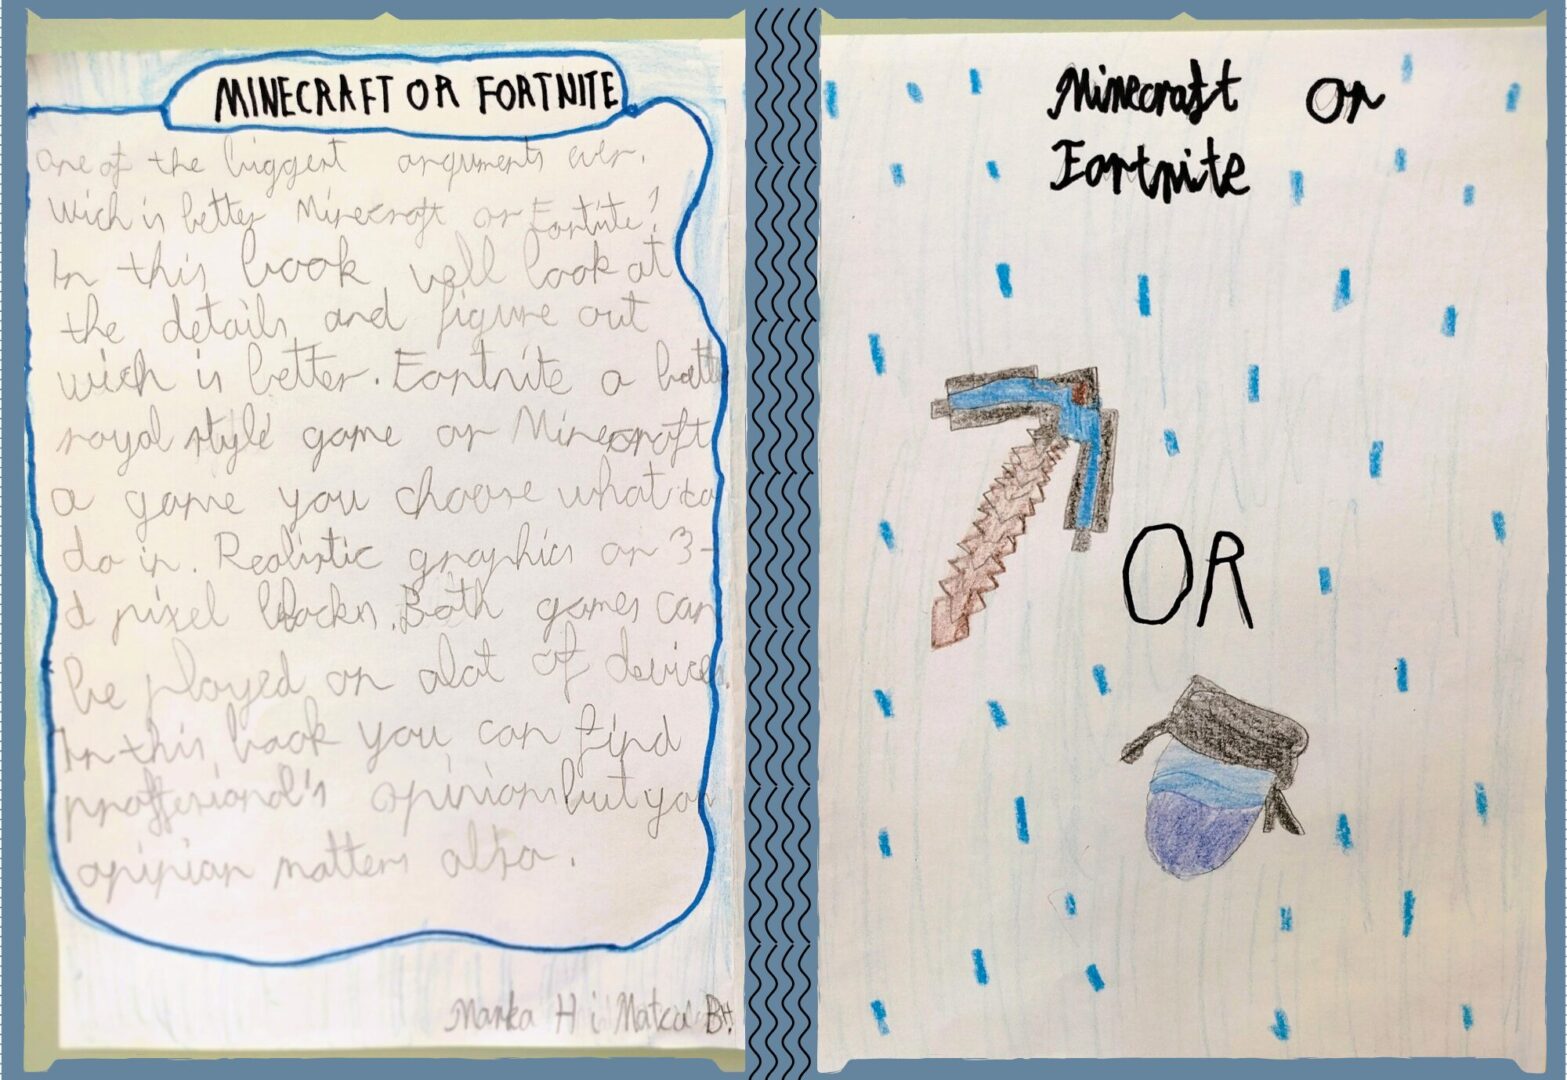 MINECRAFT OR FORTNITE
one of the biggest arguments ever.
Wich is better Minecraft or Fortite?
In this book we'll look at
the details and figure out
wich is better. Fortnite a battle
royal style game or Minecraft
a game you choose what to
do in. Realistic graphics or 3-
d pixel blocks. Both games can
be played on alot of devices.
In this book you can find
proffesional's opinions but you
opinion matters also.
Marka H i Matea BH.
Minecraft or
Fortnite
OR